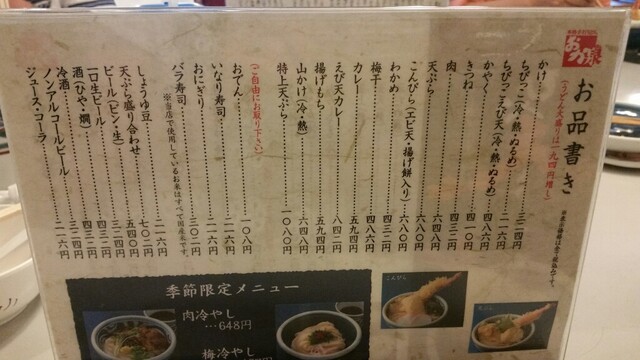 お品書き
(うどん大盛りは一九四円増し)
※表示価格は全て税込みです。
かけ……三二四円
ちびっこ(冷・熱・ぬるめ)……二一六円
ちびっこえび天(冷・熱・ぬるめ)
かやく……四八六円
きつね……四一〇円
肉……四三二円
天ぷら……六四八円
こんぴら(エビ天・揚げ餅入り)……六八〇円
わかめ……四三二円
梅干……四八六円
カレー……五九四円
えび天カレー……八四二円
揚げもち……五九四円
山かけ(冷・熱)……六四八円
特上天ぷら……一〇八〇円
(ご自由にお取り下さい)
おでん……一〇八円
いなり寿司……二一六円
おにぎり……二一六円
バラ寿司……三〇二円
※当店で使用しているお米はすべて国産米です。
しょうゆ豆……二一六円
天ぷら盛り合わせ……七〇二円
ビール(ビン・生)……五四〇円
一口生ビール……四三二円
酒(ひや・燗)……四三二円
冷酒
ノンアルコールビール
ジュース・コーラ……二一六円
季節限定メニュー
肉冷やし
…648円
梅冷やし
こんぴら
天ぷら